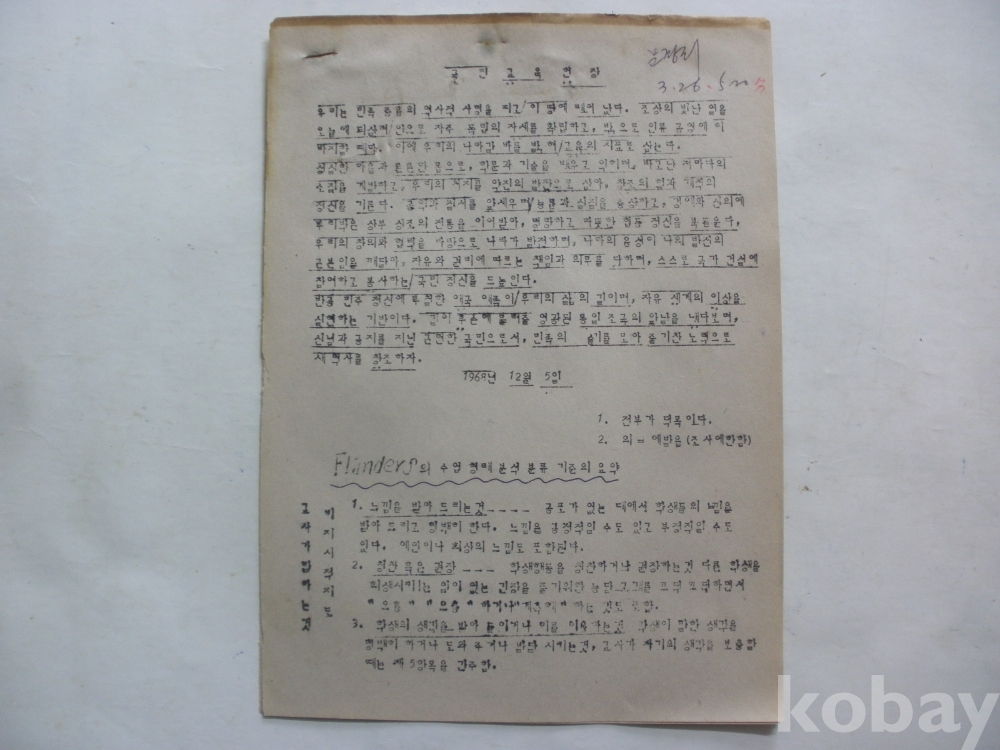 3.26.
국 민 교 육 헌 장
우리는 민족 중흥의 역사적 사명을 띠고/이 땅에 태어 났다. 조상의 빛난 얼을
오늘에 되살려/안으로 자주 독립의 자세를 확립하고, 밖으로 인류 공영에 이
바지할 때다. 이에 우리의 나아갈 바를 밝혀/교육의 지표로 삼는다.
성실한 마음과 튼튼한 몸으로, 학문과 기술을 배우고 익히며, 타고난 저마다의
소질을 계발하고, 우리의 처지를 약진의 발판으로 삼아, 창조의 힘과 개척의
정신을 기른다. 공익과 질서를 앞세우며/능률과 실질을 숭상하고, 경애와 신의에
뿌리박은 상부 상조의 전통을 이어받아, 명랑하고 따뜻한 협동 정신을 북돋운다,
우리의 창의와 협력을 바탕으로 나라가 발전하며, 나라의 융성이 나의 발전의
근본임을 깨달아, 자유와 권리에 따르는 책임과 의무를 다하며, 스스로 국가 건설에
참여하고 봉사하는/국민 정신을 드높인다.
반공 민주 정신에 투철한 애국 애족이/우리의 삶의 길이며, 자유 세계의 이상을
실현하는 기반이다. 길이 후손에 물려줄 영광된 통일 조국의 앞날을 내다보며,
신념과 긍지를 지닌 근면한 국민으로서, 민족의 슬기를 모아 줄기찬 노력으로
새 역사를 창조하자.
1968년 12월 5일
1. 전부가 덕목이다.
2. 의 = 에발음(조사에한함)
Flanders의 수업 형태 분석 분류 기준의 요약
1. 느낌을 받아 드리는것 ---- 공포가 없는 태에서 학생들의 느낌을
받아 드리고 명백히 한다. 느낌을 긍정적일 수도 있고 부정적일 수도
있다. 예언이나 회상의 느낌도 포함된다.
2. 칭찬 혹은 권장 --- 학생행동을 칭찬하거나 권장하는것 다른 학생을
희생시키는 일이 없는 긴장을 풀기위한 농담 고개를 끄덕 끄덕하면서
"으흠" "으흠" 하거나"계속해" 하는 것도 포함.
3. 학생의 생각을 받아 들이거나 이를 이용하는것 학생이 말한 생각을
명백히 하거나 도와 주거나 발달 시키는것, 교사가 자기의 생각을 보충할
때는 제 5항목을 간주함.